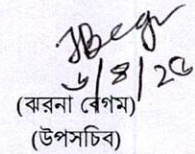 JBegu
৬/৪/২৫
(ঝরনা বেগম)
(উপসচিব)